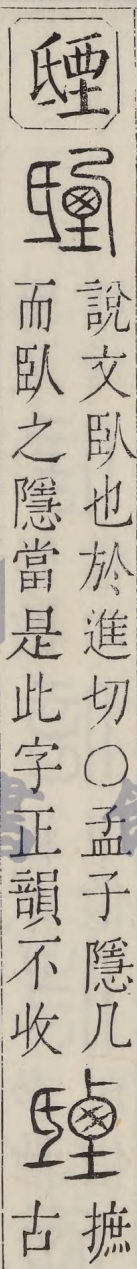 說文臥也於進切○孟子隱几
而臥之隱當是此字正韻不收
摭
古